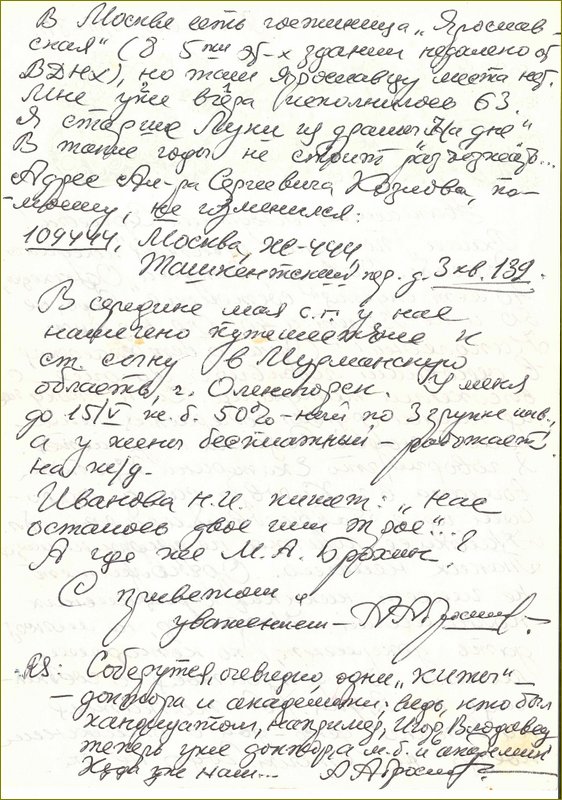 В Москве есть гостиница „Ярослав-
ская“ (в 5ти об-х здании недалеко от
ВДНХ), но там Ярославцу места нет.
Мне уже вчера исполнилось 63.
Я старше Луки из драмы „На дне“
В такие годы не стоит разъезжать...
Адрес Ал-ра Сергеевича Козлова, по-
-моему, не изменился:
109444, Москва, Ж-444,
Ташкентский пер. д. 3 кв. 139.
В середине мая с.г. у нас
намечено путешествие к
ст. сыну в Мурманскую
область, г. Оленегорск. У меня
до 15/V ж.б. 50%-ный по 3 группе инв.,
а у жены бесплатный – работает
на ж/д.
Иванова Н.И. пишет: „нас
осталось двое или трое“...
А где же М. А. Брохин?
С приветом и
уважением –
PS: Соберутся, очевидно, одни „киты“ –
– доктора и академики; ведь, кто был
кандидатом, например, Игор.
теперь уже доктора м.б. и академики
Куда уж нам...